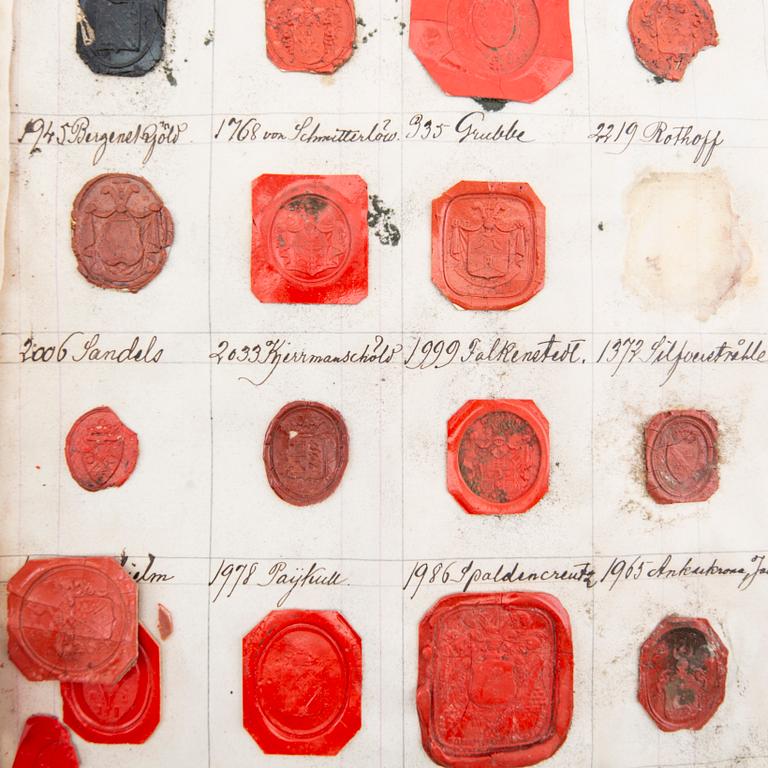 1945 Bergenskjöld. 1768 von Schmitterlöw. 935 Grubbe 2219 Rothoff
2006 Sandels 2033 Kjerrmanschöld 1999 Falkenstedt. 1372 Silfverstråhle
jelm 1978 Paÿkull. 1986 Spaldencreutz 1965 Ankarkrona,